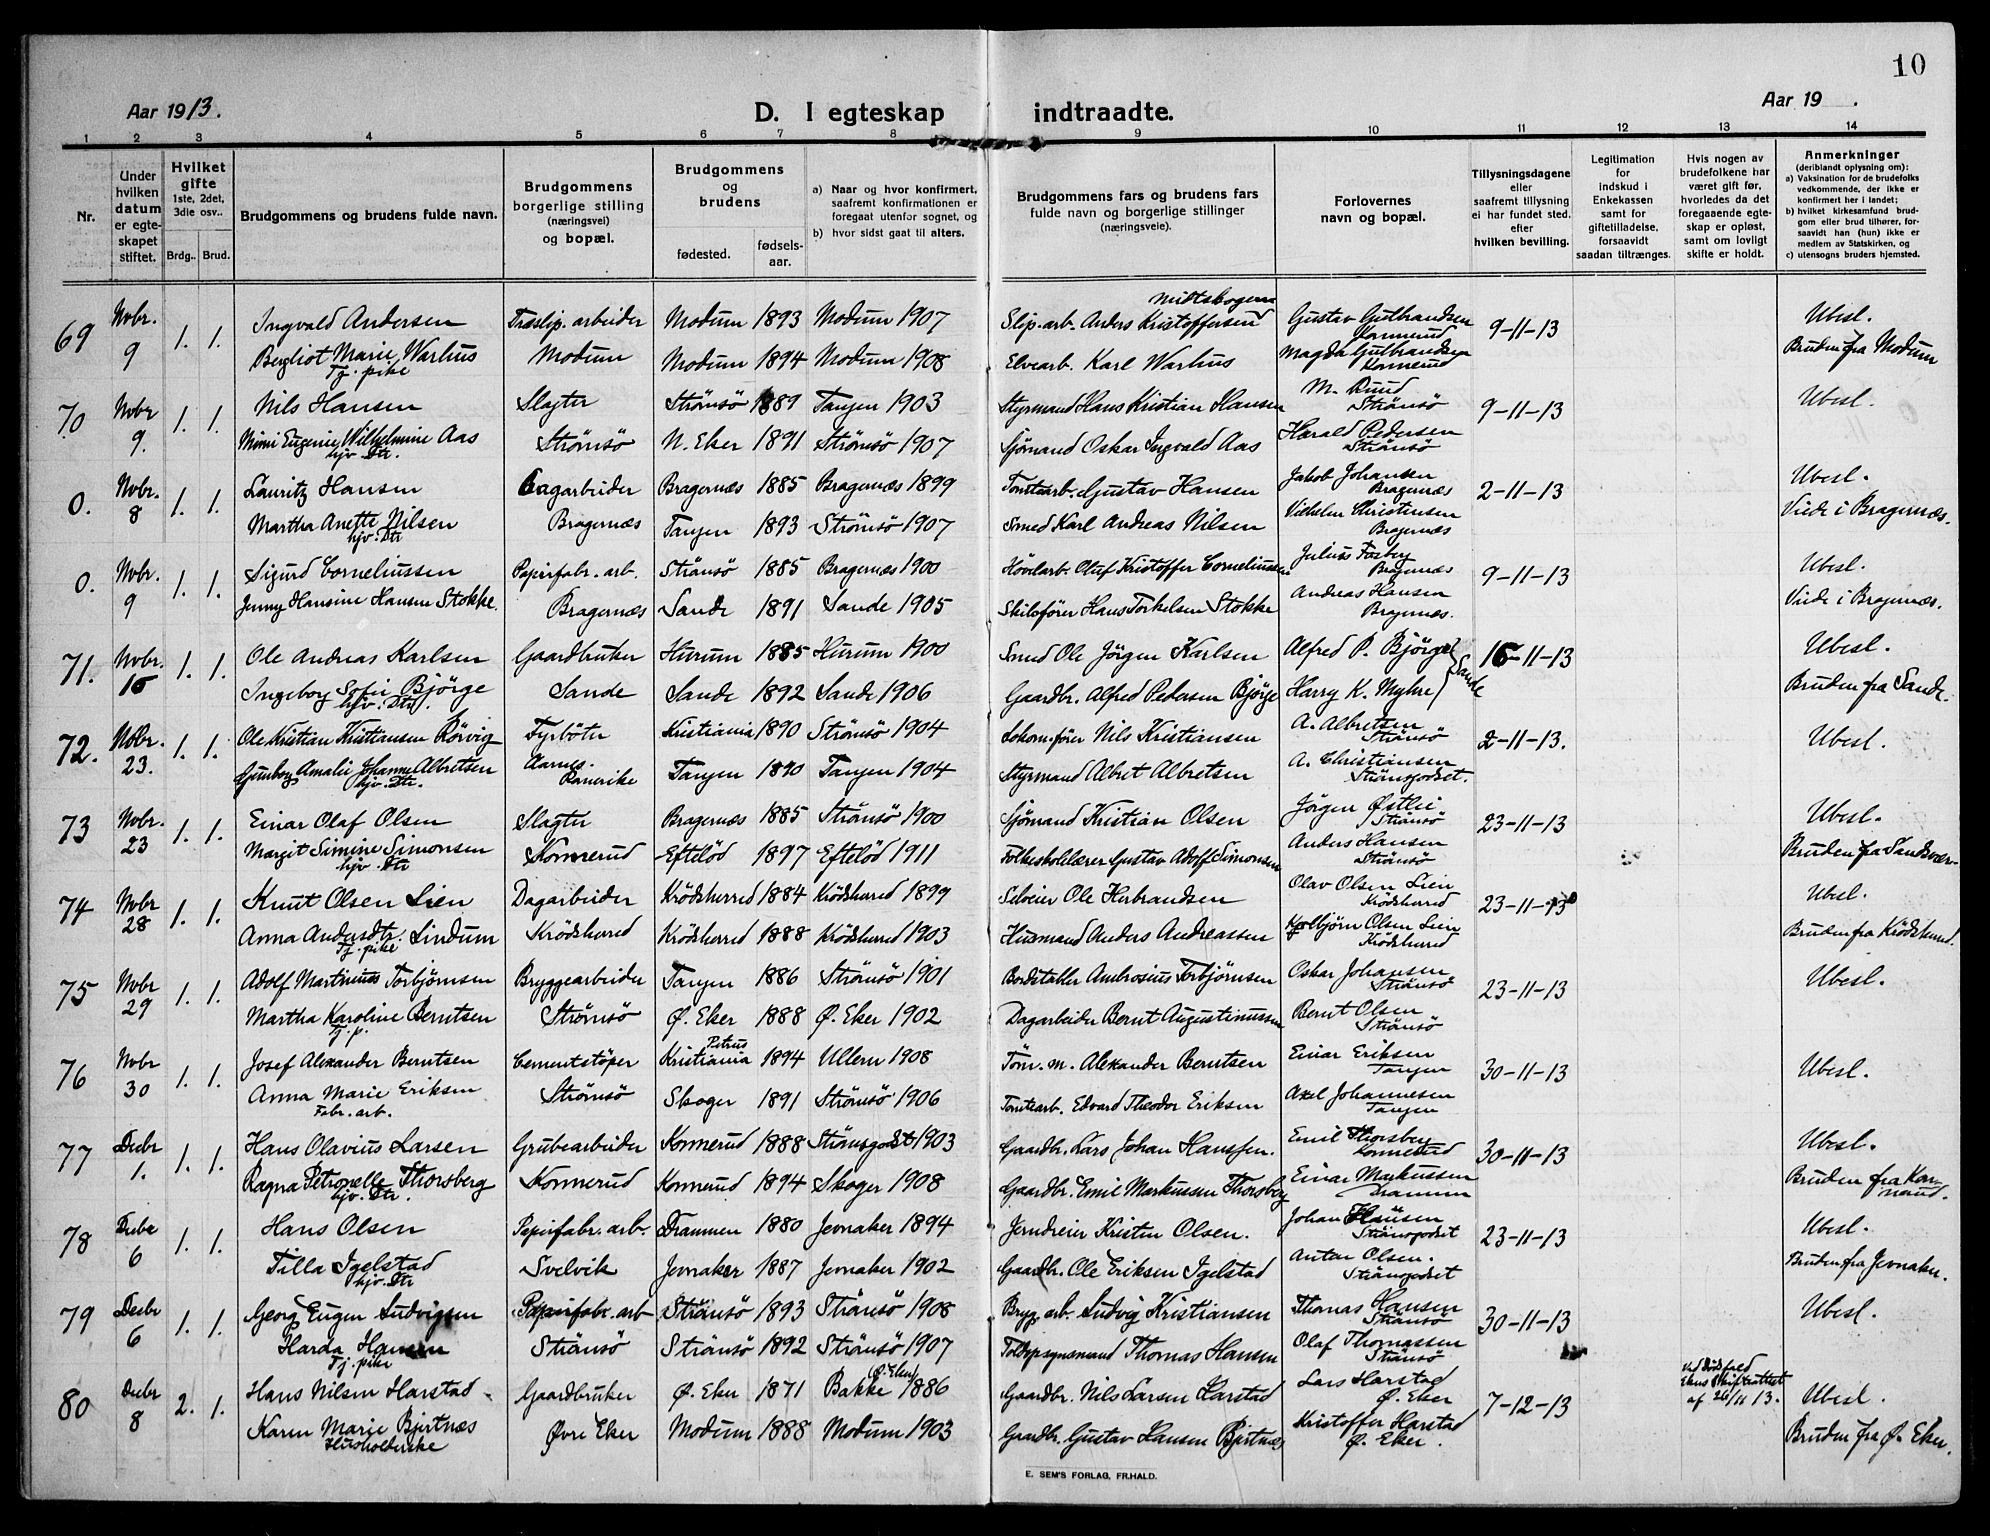 10
Aar 1913.
D. I egteskap indtraadte.
Aar 19 .
1 2 3 4 5 6 7 8 9 10 11 12 13 14
Nr.
Under
hvilken
datum
er egte-
skapet
stiftet.
Hvilket
gifte
1ste, 2det,
3die osv..
Brdg.. Brud.
Brudgommens og brudens fulde navn.
Brudgommens
borgerlige stilling
(næringsvei)
og bopæl.
Brudgommens
og
brudens
fødested.
fødsels-
aar.
a) Naar og hvor konfirmert,
saafremt konfirmationen er
foregaat utenfor sognet, og
b) hvor sidst gaat til alters.
Brudgommens fars og brudens fars
fulde navn og borgerlige stillinger
(næringsveie).
Forlovernes
navn og bopæl.
Tillysningsdagene
eller
saafremt tillysning
ei har fundet sted.
efter
hvilken bevilling.
Legitimation
for
indskud i
Enkekassen
samt for
giftetilladelse,
forsaavidt
saadan tiltrænges.
Hvis nogen av
brudefolkene har
været gift før,
hvorledes da det
foregaaende egte-
skap er opløst,
samt om lovligt
skifte er holdt.
Anmerkninger
(deriblandt oplysning om):
a) Vaksination for de brudefolks
vedkommende, der ikke er
konfirmert her i landet;
b) hvilket kirkesamfund brud-
gom eller brud tilhører, for-
saavidt han (hun) ikke er
medlem av Statskirken, og
c) utensogns bruders hjemsted.
69 Novbr. 9 1. 1. Ingvald Andersen Træslip. arbeider Modum 1893 Modum 1907 Slip. arb. Anders Kristoffersen Midtskogen Gustav Gulbrandsen Konnerud 9-11-13 Ubesl.
Bergliot Marie Warhus Modum Modum 1894 Modum 1908 Elvearb. Karl Warhus Magda Gulbrandsen Konnerud Bruden fra Modum
Tj. pike
70 Novbr 9. 1. 1. Nils Hansen Slagter Strömsö 1889 Tangen 1903 Styrmand Hans Kristian Hansen M. Ruud Strömsö 9-11-13 Ubesl.
Mimi Eugenie Wilhelmine Aas Strömsö N. Eker 1891 Strömsö 1907 Sjømand Oskar Ingvald Aas Harald Pedersen Strömsö
hjv. Dtr.
0. Novbr. 8 1. 1. Lauritz Hansen Dagarbeider Bragernæs 1885 Bragernæs 1899 Tomtearb. Gustav Hansen Jakob Johansen Bragernæs 2-11-13 Ubesl.
Martha Anette Nilsen Bragernæs Tangen 1893 Strömsö 1907 Smed Karl Andreas Nilsen Vilhelm Christensen Bragernæs Viede i Bragernæs.
hjv. Dtr
0. Novbr. 9 1. 1. Sigurd Corneliussen Papirfabr. arb. Strömsö 1885 Bragernæs 1900 Høvlearb. Oluf Kristoffer Corneliussen Julius Fosberg Bragernæs 9-11-13 Ubesl.
Jenny Hansine Hansen Stokke. Bragernæs Sande 1891 Sande 1905 Skibsfører Hans Torkelsen Stokke Andreas Hansen Bragernæs. Viede i Bragernæs.
71. Novbr. 16 1. 1. Ole Andreas Karlsen Gaardbruker Hurum 1885 Hurum 1900 Smed Ole Jörgen Karlsen Alfred P. Bjørge 16-11-13 Ubesl.
Ingeborg Sofie Bjørge Sande Sande 1892 Sande 1906 Gaardbr. Alfred Pedersen Bjørge Harry K. Myhre Sande Bruden fra Sande.
hjv. Dtr.
72. Novbr. 23. 1. 1. Ole Kristian Kristiansen Rörvig Fyrböter Kristiania 1890 Strömsö 1904 Lokom.fører Nils Kristiansen A. Albretsen Strömsö 2-11-13. Ubesl.
Gunborg Amalie Johanne Albretsen Aarnes. Romerike Tangen 1890 Tangen 1904 Styrmand Albret Albretsen A. Christiansen Strömsgodset.
hjv. Dtr.
73 Novbr. 23 1. 1. Einar Olaf Olsen Slagter Bragernæs 1885 Strömsö 1900 Sjømand Kristian Olsen Jørgen Østlie Strömsö 23-11-13 Ubesl.
Margit Simine Simonsen Konnerud Efteløt 1897 Efteløt 1911 Folkeskolelærer Gustav Adolf Simonsen Anders Hansen Strömsö Bruden fra Sandsvær
hjv. Dtr
74 Novbr 28 1. 1. Knut Olsen Lien Dagarbeider Krödsherred 1884 Krödsherred 1899 Selveier Ole Herbrandsen Olav Olsen Lien Krödsherred 23-11-13 Ubesl.
Anna Andersdtr. Lindum Krödsherred Krödsherred 1888 Krödsherred 1903 Husmand Anders Andreassen Kolbjörn Olsen Lien Krödsherred Bruden fra Krödsherred.
Tj. pike
75 Novbr 29 1. 1. Adolf Martinius Torbjørnsen Bryggearbeider Tangen 1886 Strömsö 1901 Bordstabler Ambrosius Torbjørnsen Oskar Johansen Strömsö 23-11-13 Ubesl.
Martha Karoline Berntsen Strömsö Ø. Eker 1888 Ø. Eker 1902 Dagarbeider Bernt Augustinussen Bernt Olsen Strömsö
Tj. p.
76 Novbr 30 1. 1. Josef Alexander Berntsen Cementstøper Petrus Kristiania 1894 Ullern 1908 Töm. m. Alexander Berntsen Einar Eriksen Tangen 30-11-13 Ubesl.
Anna Marie Eriksen Strömsö Skoger 1891 Strömsö 1906 Tomtearb. Edvard Theodor Eriksen Axel Johannesen Tangen
Fabr. arb.
77 Decbr 1. 1. 1. Hans Olavius Larsen Grubearbeider Konnerud 1888 Strömsgodset 1903 Gaardbr. Lars Johan Hanssen. Emil Thorsberg Konnerud 30-11-13 Ubesl.
Ragna Petronelle Thorsberg Konnerud Konnerud 1894 Skoger 1908 Gaardbr. Emil Markussen Thorsberg Einar Markussen Drammen Bruden fra Konnerud.
hjv. Dtr.
78 Decbr 6 1. 1. Hans Olsen Papirfabr. arb. Drammen 1880 Jevnaker 1894 Jerndreier Kristen Olsen. Johan Hansen Strömsgodset 23-11-13 Ubesl.
Tilla Igelstad Svelvik Jevnaker 1887 Jevnaker 1902 Gaardbr. Ole Eriksen Igelstad Anton Olsen. Strömsgodset Bruden fra Jevnaker.
hjv. Dtr
79 Decbr 6 1. 1. Georg Eugen Ludvigsen Papirfabr. arb Strömsö 1893 Strömsö 1908 Brygg. arb. Ludvig Kristiansen Thomas Hansen Strömsö 30-11-13 Ubesl.
Harda Hansen Strömsö Strömsö 1892 Strömsö 1907 Toldopsynsmand Thomas Hansen Olaf Thomassen Strömsö
Tj. pike
80 Decbr 8 2. 1. Hans Nilsen Harstad Gaardbruker Ø. Eker 1871 Bakke (Ø. Eker) 1886 Gaardbr. Nils Larsen Harstad Lars Harstad Ø. Eker 7-12-13 Ved Dødsfald af 26/11 13. Ubesl.
Karen Marie Bjertnæs Øvre Eker Modum 1888 Modum 1903 Gaardbr. Gustav Hansen Bjertnæs Kristoffer Harstad Ø. Eker. Bruden fra Ø. Eker.
Husholderske
E. SEM'S FORLAG, FR.HALD.